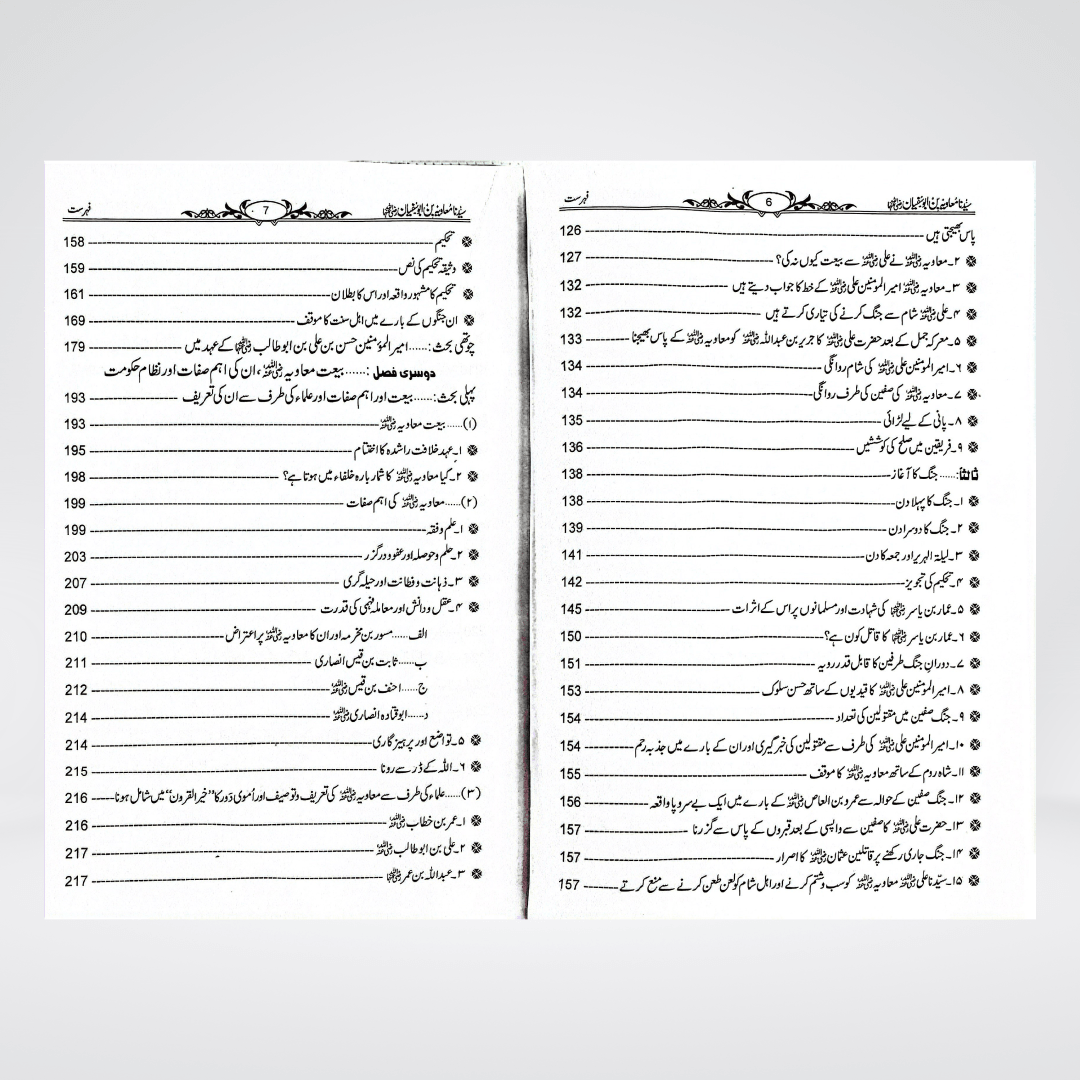 سیدنا معاویہ بن ابوسفیان رضی اللہ عنہما 6 فہرست
پاس بھیجتی ہیں 126
۲۔ معاویہ رضی اللہ عنہ نے علی رضی اللہ عنہ سے بیعت کیوں نہ کی؟ 127
۳۔ معاویہ رضی اللہ عنہ امیر المومنین علی رضی اللہ عنہ کے خط کا جواب دیتے ہیں 132
۴۔ علی رضی اللہ عنہ شام سے جنگ کرنے کی تیاری کرتے ہیں 132
۵۔ معرکہ جمل کے بعد حضرت علی رضی اللہ عنہ کا جریر بن عبداللہ رضی اللہ عنہ کو معاویہ رضی اللہ عنہ کے پاس بھیجنا 133
۶۔ امیر المومنین علی رضی اللہ عنہ کی شام روانگی 134
۷۔ معاویہ رضی اللہ عنہ کی صفین کی طرف روانگی 134
۸۔ پانی کے لیے لڑائی 135
۹۔ فریقین میں صلح کی کوششیں 136
ثالثاً:...... جنگ کا آغاز 138
۱۔ جنگ کا پہلا دن 138
۲۔ جنگ کا دوسرا دن 139
۳۔ لیلۃ الہریر اور جمعہ کا دن 141
۴۔ تحکیم کی تجویز 142
۵۔ عمار بن یاسر رضی اللہ عنہ کی شہادت اور مسلمانوں پر اس کے اثرات 145
۶۔ عمار بن یاسر رضی اللہ عنہ کا قاتل کون ہے؟ 150
۷۔ دورانِ جنگ طرفین کا قابل قدر رویہ 151
۸۔ امیر المومنین علی رضی اللہ عنہ کا قیدیوں کے ساتھ حسن سلوک 153
۹۔ جنگ صفین میں مقتولین کی تعداد 154
۱۰۔ امیر المومنین علی رضی اللہ عنہ کی طرف سے مقتولین کی خبر گیری اور ان کے بارے میں جذبہ رحم 154
۱۱۔ شاہ روم کے ساتھ معاویہ رضی اللہ عنہ کا موقف 155
۱۲۔ جنگ صفین کے حوالہ سے عمرو بن العاص رضی اللہ عنہ کے بارے میں ایک بے سروپا واقعہ 156
۱۳۔ حضرت علی رضی اللہ عنہ کا صفین سے واپسی کے بعد قبروں کے پاس سے گزرنا 157
۱۴۔ جنگ جاری رکھنے پر قاتلین عثمان رضی اللہ عنہ کا اصرار 157
۱۵۔ سیّدنا علی رضی اللہ عنہ معاویہ رضی اللہ عنہ کو سب و شتم کرنے اور اہل شام کو لعن طعن کرنے سے منع کرتے 157
سیدنا معاویہ بن ابوسفیان رضی اللہ عنہما 7 فہرست
تحکیم 158
وثیقہ تحکیم کی نص 159
تحکیم کا مشہور واقعہ اور اس کا بطلان 161
ان جنگوں کے بارے میں اہل سنت کا موقف 169
چوتھی بحث:...... امیر المؤمنین حسن بن علی بن ابو طالب رضی اللہ عنہما کے عہد میں 179
دوسری فصل:...... بیعت معاویہ رضی اللہ عنہ، ان کی اہم صفات اور نظام حکومت
پہلی بحث:...... بیعت اور اہم صفات اور علماء کی طرف سے ان کی تعریف 193
(۱)...... بیعت معاویہ رضی اللہ عنہ 193
۱۔ عہد خلافت راشدہ کا اختتام 195
۲۔ کیا معاویہ رضی اللہ عنہ کا شمار بارہ خلفاء میں ہوتا ہے؟ 198
(۲)...... معاویہ رضی اللہ عنہ کی اہم صفات 199
۱۔ علم و فقہ 199
۲۔ حلم و حوصلہ اور عفو و درگزر 203
۳۔ ذہانت و فطانت اور حیلہ گری 207
۴۔ عقل و دانش اور معاملہ فہمی کی قدرت 209
الف...... مسور بن مخرمہ اور ان کا معاویہ رضی اللہ عنہ پر اعتراض 210
ب...... ثابت بن قیس انصاری 211
ج...... احنف بن قیس رضی اللہ عنہ 212
د...... ابو قتادہ انصاری رضی اللہ عنہ 214
۵۔ تواضع اور پرہیز گاری 214
۶۔ اللہ کے ڈر سے رونا 215
(۳)...... علماء کی طرف سے معاویہ رضی اللہ عنہ کی تعریف و توصیف اور اُموی دَور کا ”خیر القرون“ میں شامل ہونا 216
۱۔ عمر بن خطاب رضی اللہ عنہ 216
۲۔ علی بن ابو طالب رضی اللہ عنہ 217
۳۔ عبداللہ بن عمر رضی اللہ عنہما 217